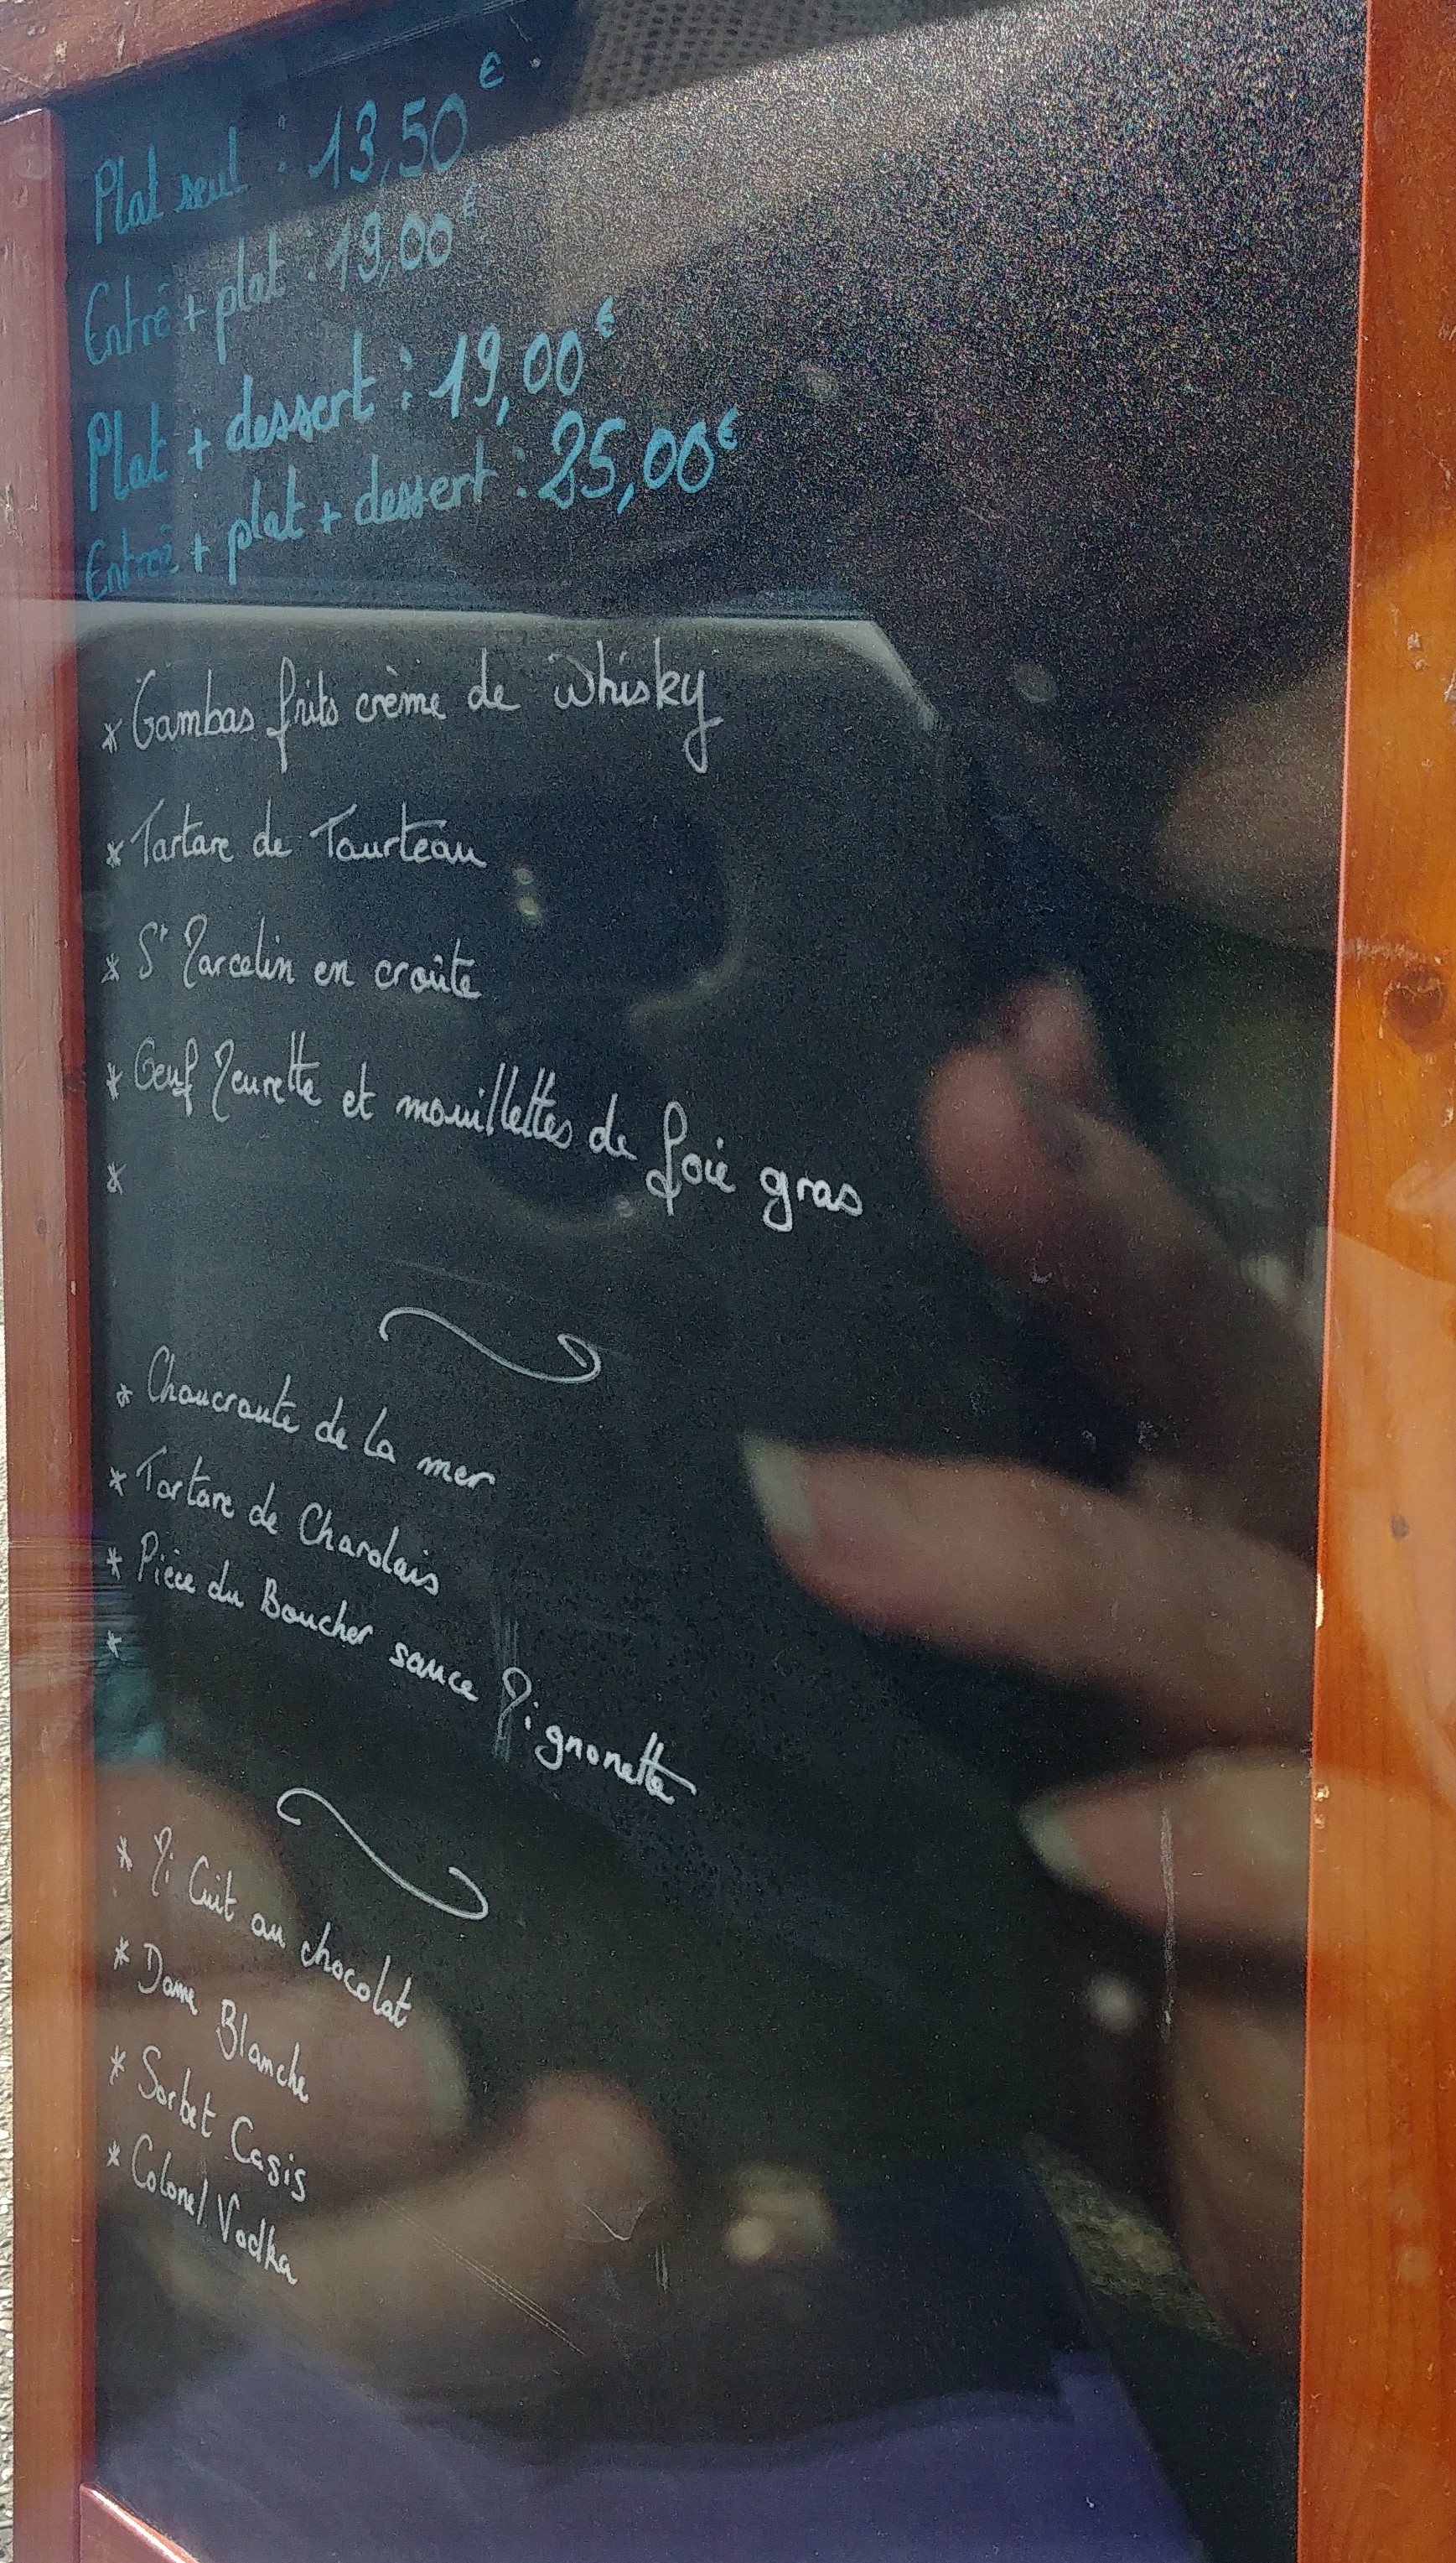 Plat seul : 13,50€
Entrée + plat : 19,00€
Plat + dessert : 19,00€
Entrée + plat + dessert : 25,00€
* Gambas frits crème de Whisky
* Tartare de Tourteau
* St Marcelin en croûte
* Oeuf Meurette et mouillettes de foie gras
*
* Choucroute de la mer
* Tartare de Charolais
* Pièce du Boucher sauce Mignonette
*
* Mi Cuit au chocolat
* Dame Blanche
* Sorbet Casis
* Colonel Vodka